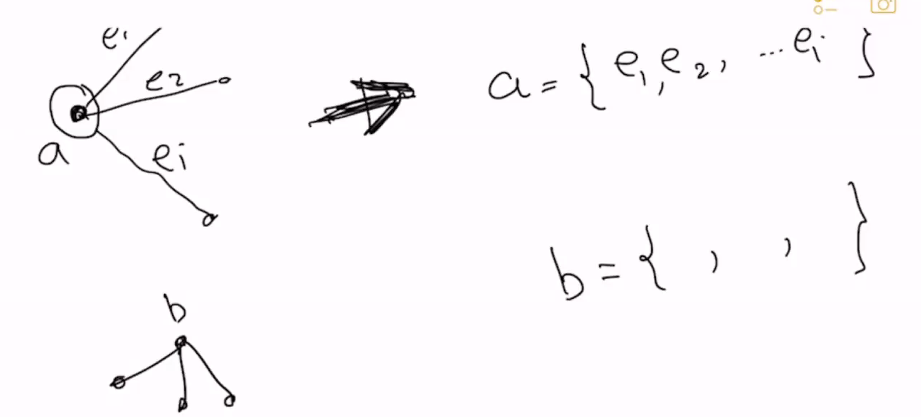 e₁
e₂
eᵢ
a
a = { e₁, e₂, ... eᵢ }
b = { , , }
b